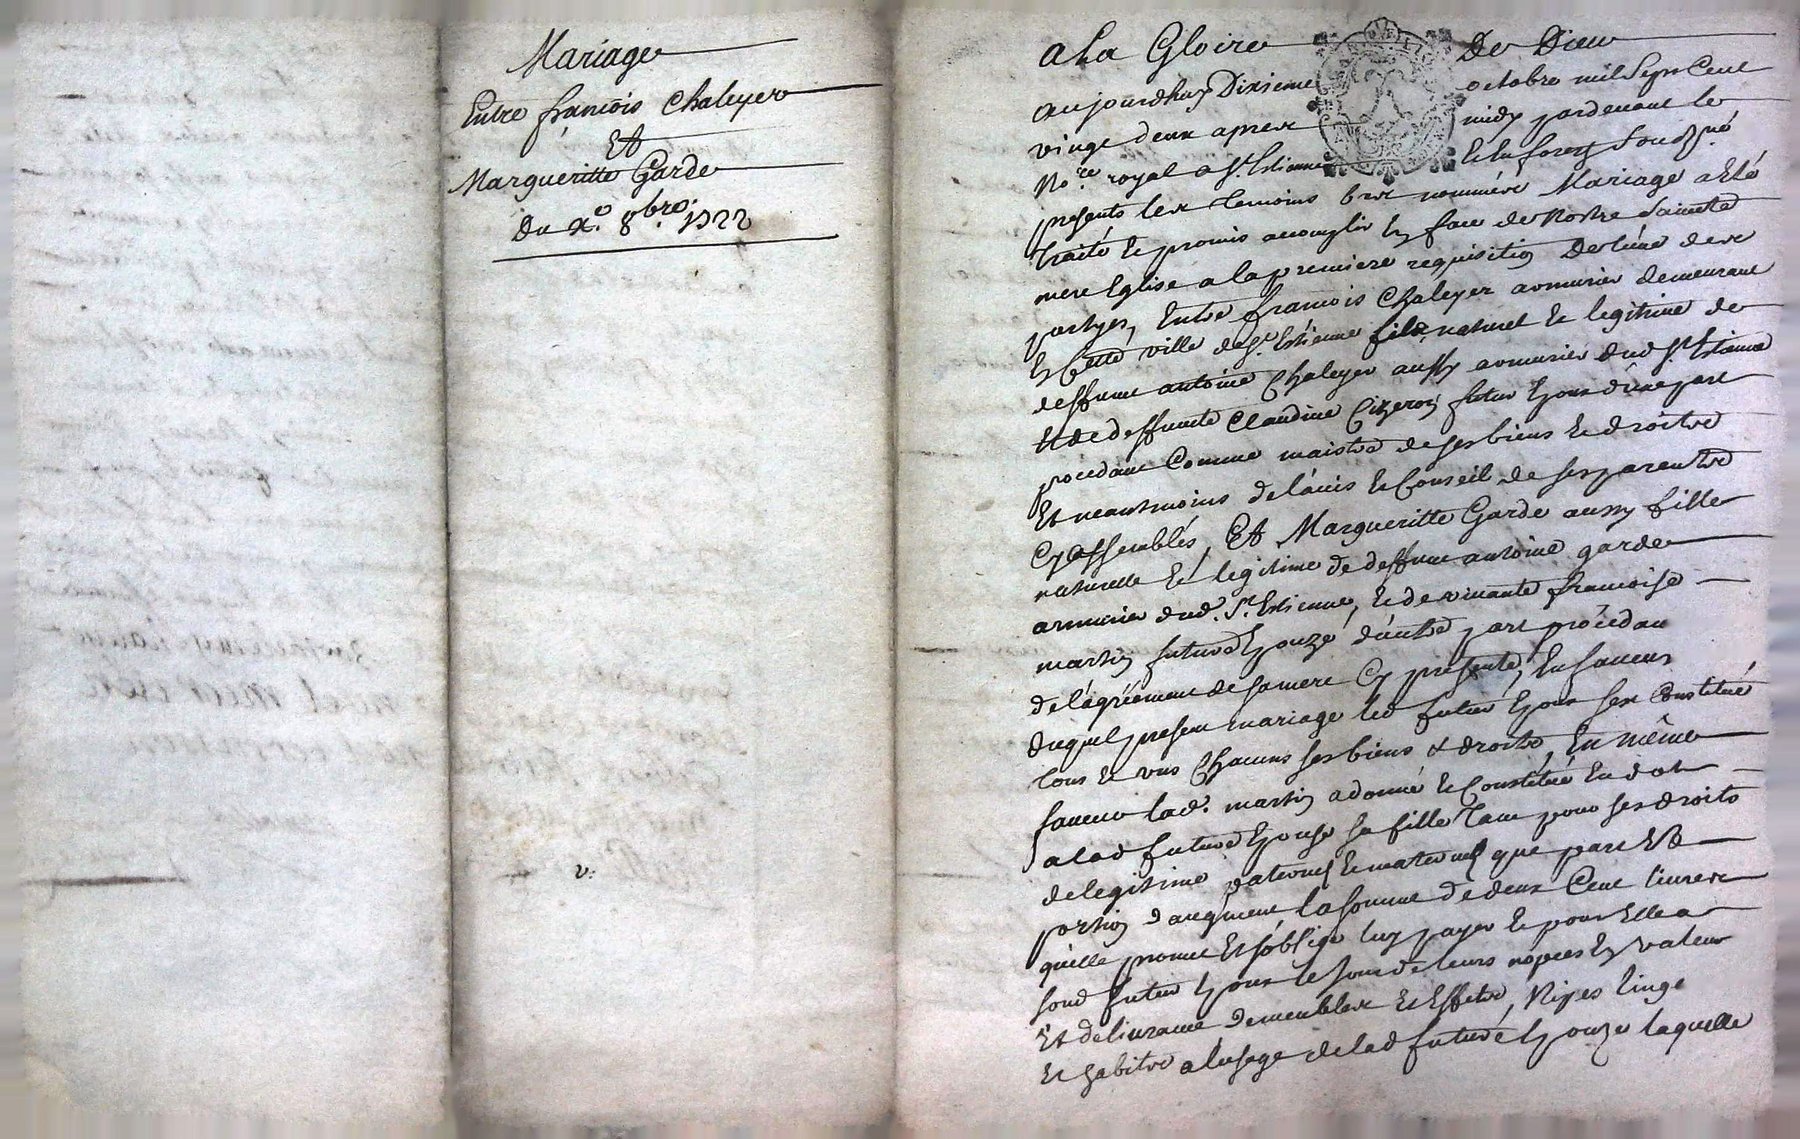 Mariage
Entre françois Chaleyer
Et
Margueritte Garde
Du x.e 8bre. 1722
v.
a La Gloire De Dieu
aujourdhuy Dixieme octobre mil Sept Cent
vingt deux apres midy pardevant le
No.re royal a St. Estienne En forez Soussigné
presents les temoins bas nommés Mariage a Eté
traité Et promis accomplir En face de Nostre Sainte
mere Eglise a la premiere requisition De l'une des
partyes, Entre françois Chaleyer armurier demeurant
En Cette ville de St. Estienne fils naturel Et legitime de
deffunt antoine Chaleyer aussy armurier dud. St. Estienne
Et de deffunte Claudine Cizeron futur Epoux d'une part
procedant Comme maistre de ses biens Et droits
Et neantmoins de l'avis Et Conseil de ses parents
Cy assemblés, Et Margueritte Garde aussy fille
naturelle Et legitime de deffunt antoine garde
armurier dud. St. Estienne, Et de vivante françoise
martin future Epouze d'autre part procedant
de l'agréement de sa mere Cy presente, En faveur
duquel present mariage led. futur Epoux s'est Constitué
tous Et uns Chacuns ses biens & droits, En même
faveur lad. martin a donné Et Constitué En dot
a lad. future Epouse sa fille tant pour ses droits
de legitime paternel Et maternel que pars Et
portion d'augment la somme de deux Cent livres
qu'elle promet Et s'oblige luy payer Et pour Elle a
sond. futur Epoux le jour de leurs nopces En valeur
Et delivrance de meubles Et Effets, Nipes linge
Et habits a l'usage de lad. future Epouze laquelle